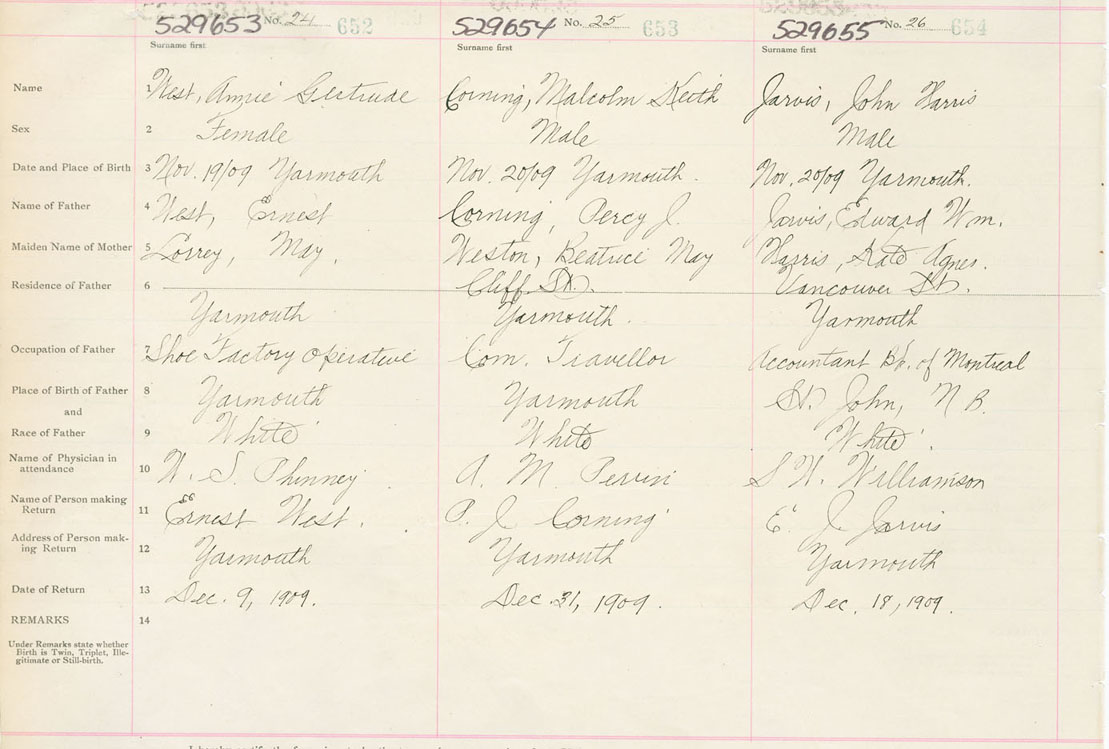 529653 No. 24 652 529654 No. 25 653 529655 No. 26 654
Surname first Surname first Surname first
Name 1 West, Annie Gertrude Corning, Malcolm Keith Jarvis, John Harris
Sex 2 Female Male Male
Date and Place of Birth 3 Nov. 19/09 Yarmouth Nov. 20/09 Yarmouth. Nov. 20/09 Yarmouth.
Name of Father 4 West, Ernest Corning, Percy J. Jarvis, Edward Wm.
Maiden Name of Mother 5 May. Weston, Beatrice May Harris, Kate Agnes.
Residence of Father 6 Cliff St. Vancouver St.
Yarmouth Yarmouth. Yarmouth
Occupation of Father 7 Shoe Factory Operative Com. Travellor Accountant Bk. of Montreal
Place of Birth of Father 8 Yarmouth Yarmouth St. John, N B.
and
Race of Father 9 White White White.
Name of Physician in
attendance 10 W. S. Phinney A. M. Perrin S W. Williamson
Name of Person making
Return 11 Ernest West. P. J. Corning E. J. Jarvis
Address of Person mak-
ing Return 12 Yarmouth Yarmouth Yarmouth
Date of Return 13 Dec. 9, 1909. Dec 31, 1909. Dec. 18, 1909.
REMARKS 14
Under Remarks state whether
Birth is Twin, Triplet, Ille-
gitimate or Still-birth.